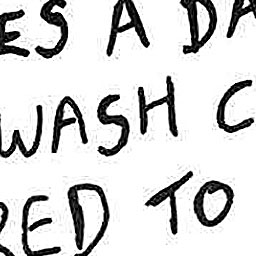 ES A DA
WASH C
RED TO